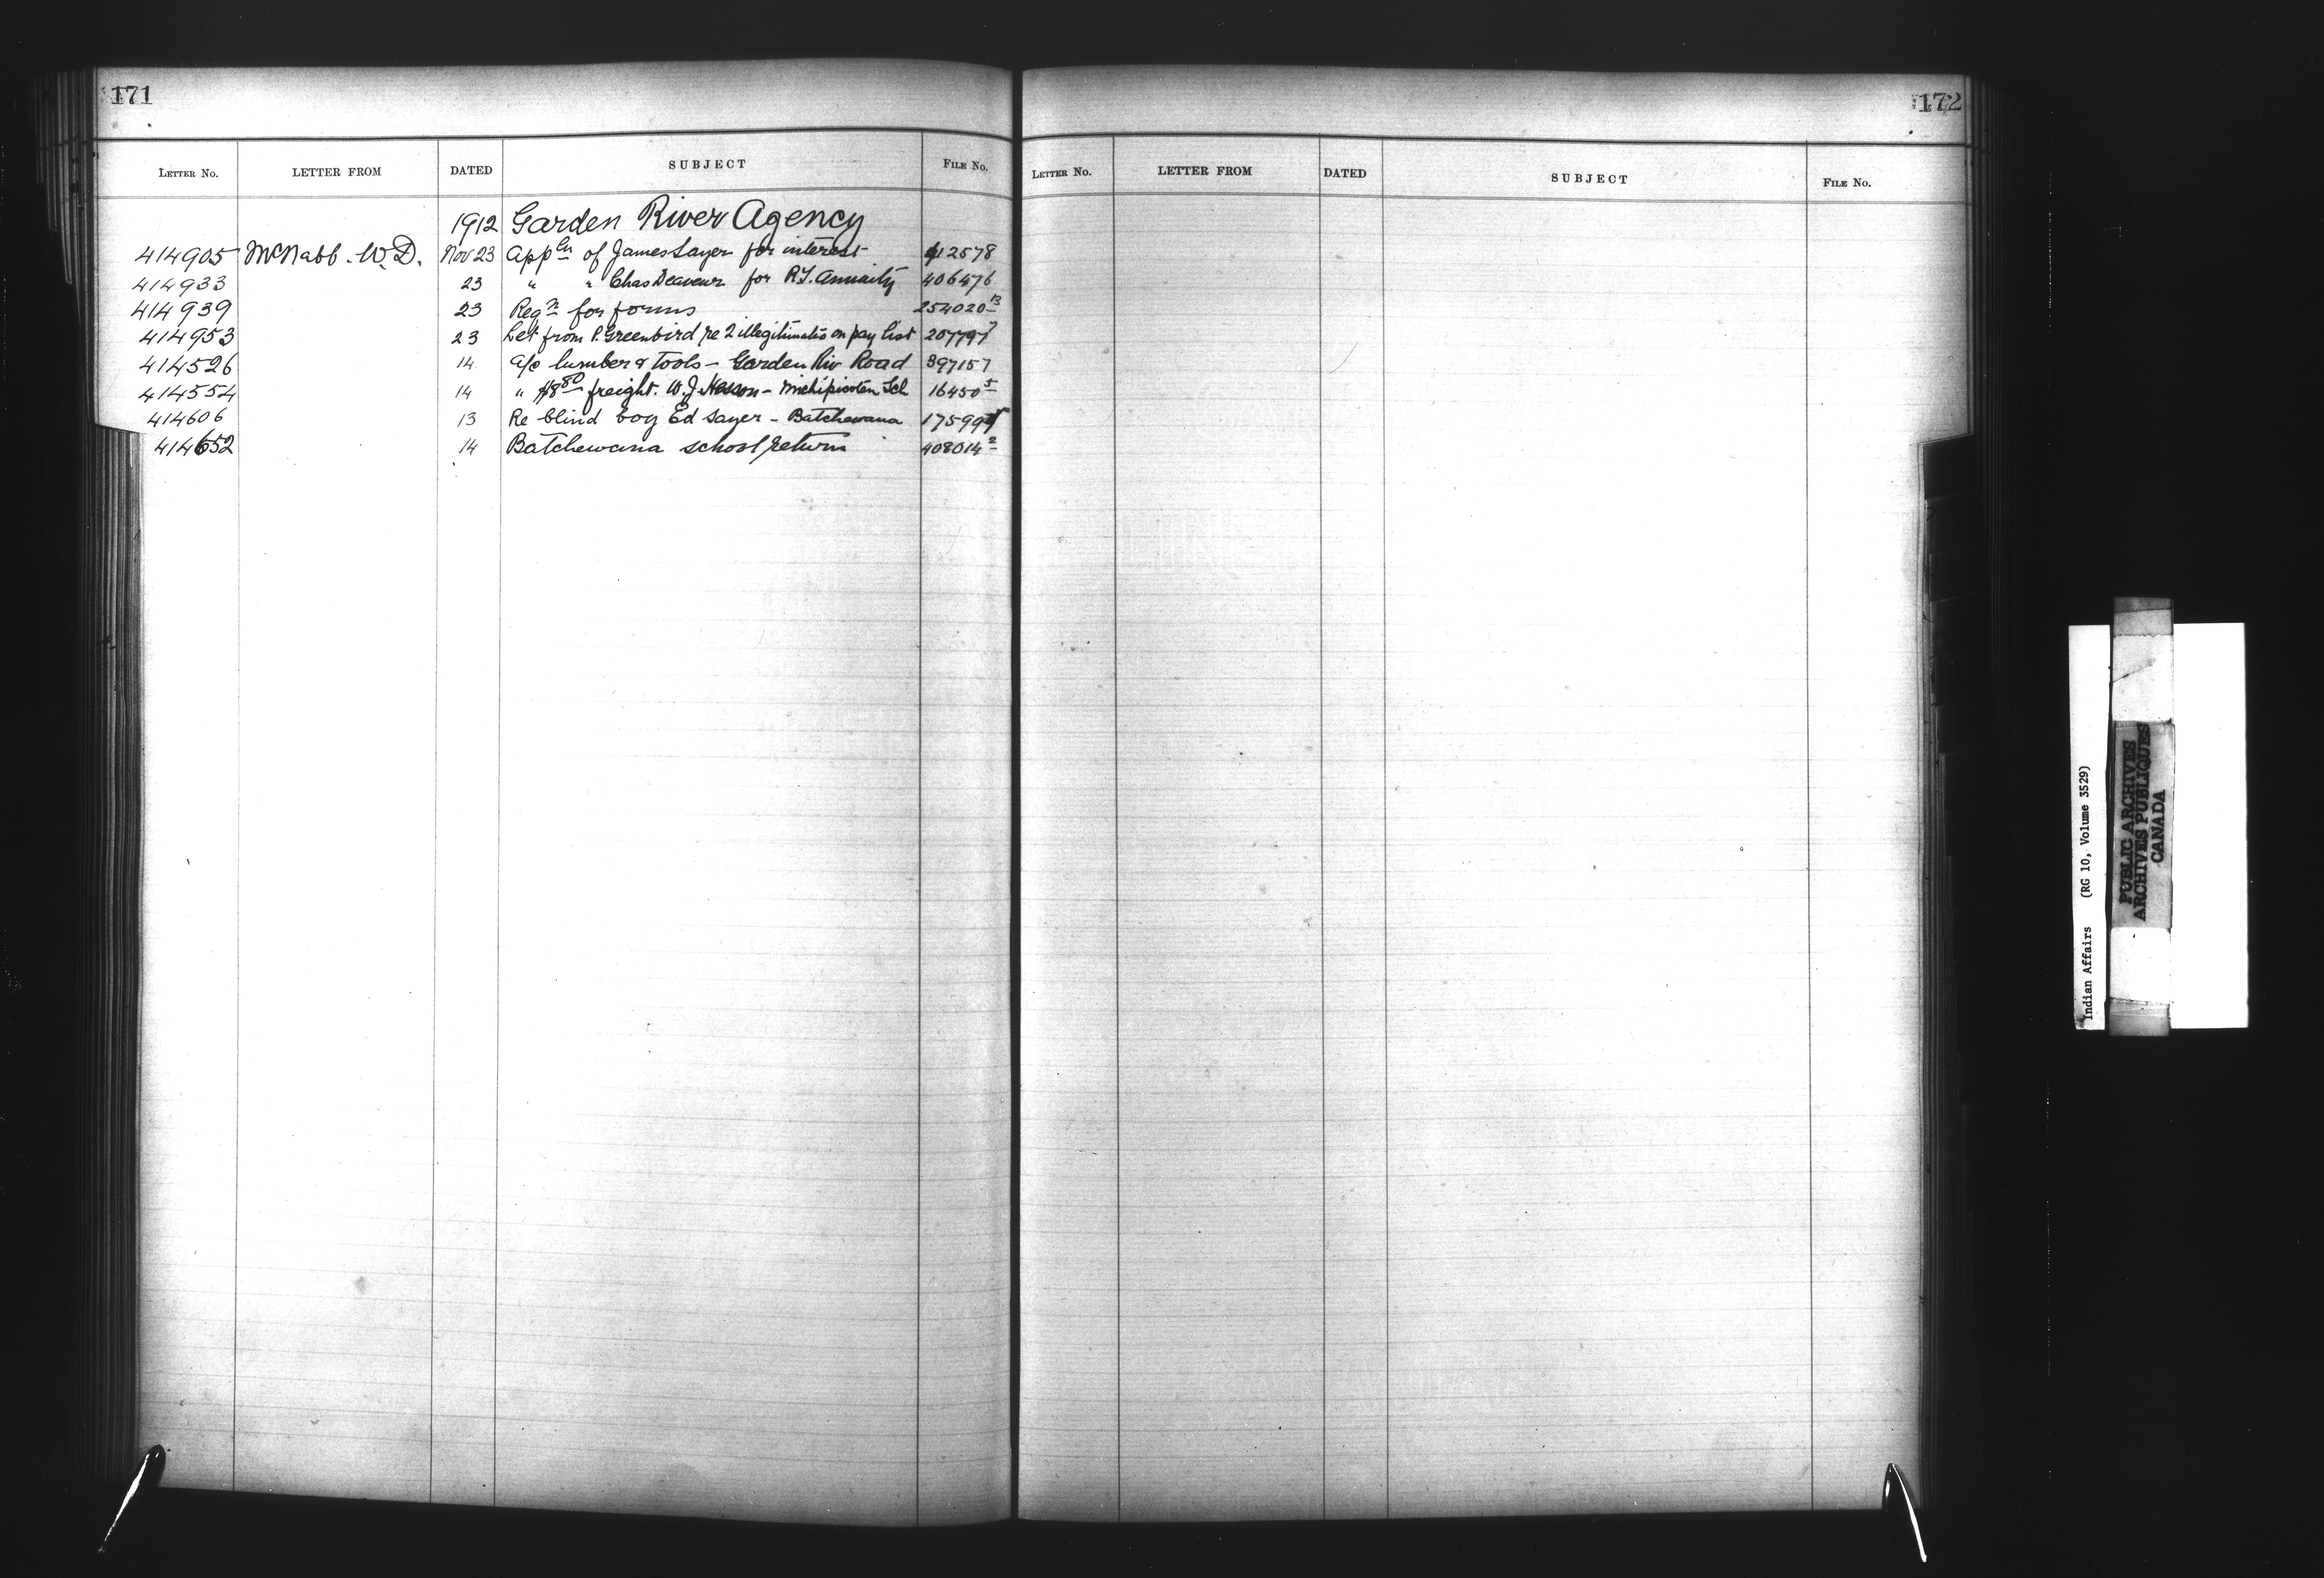 171
LETTER No. LETTER FROM DATED SUBJECT FILE No.
1912 Garden River Agency
414905 McNabb. W. D. Nov 23 Appln of James Sayer for interest 412578
414933 23 " " Chas for R.T. annuity 406476
414939 23 Reqn for forms 254020-13
414953 23 Let from P. Greenbird re 2 illegitimates on pay list 207797
414526 14 a/c lumber & tools - Garden Riv Road 397157
414554 14 " $8 80 freight. W. J. - Michipicoten Sch 16450-5
414606 13 Re blind boy Ed Sayer - Batchewana
414652 14 Batchewana school return 408014-2
172
LETTER No. LETTER FROM DATED SUBJECT FILE No.
Indian Affairs (RG 10, Volume 3529)
PUBLIC ARCHIVES
ARCHIVES PUBLIQUES
CANADA